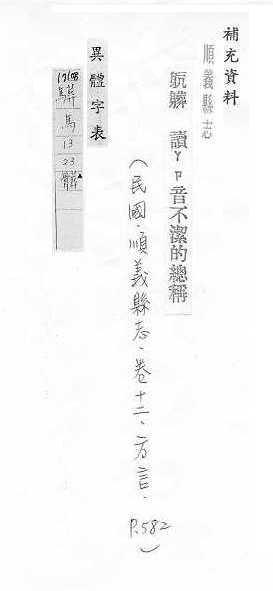 補充資料
順義縣志
骯髒 讀ㄚㄗ音不潔的總稱
(民國.順義縣志.卷十二、方言.P.582)
異體字表
馬
13
23